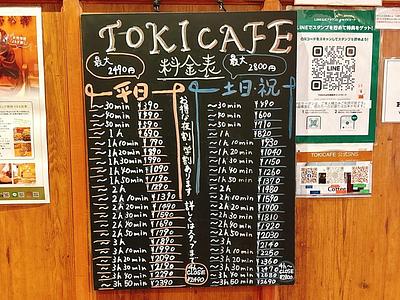 TOKICAFE
最大
2490円
料金表
最大
2800円
平日
~30min ¥390
~40min ¥490
~50min ¥590
~1h ¥690
~1h10min ¥790
~1h20min ¥890
~1h30min ¥990
~1h40min ¥1090
~1h50min ¥1190
~2h ¥1290
~2h10min ¥1390
~2h20min ¥1490
~2h30min ¥1590
~2h40min ¥1690
~2h50min ¥1790
~3h ¥1890
~3h10min ¥1990
~3h20min ¥2090
~3h30min ¥2190
~3h40min ¥2290
~3h50min ¥2390
CLOSE
¥2490
お得な夜割、学割あります
詳しくはスタッフまで
土日・祝
~30min ¥490
~40min ¥600
~50min ¥710
~1h ¥820
~1h10min ¥930
~1h20min ¥1040
~1h30min ¥1150
~1h40min ¥1260
~1h50min ¥1370
~2h ¥1480
~2h10min ¥1590
~2h20min ¥1700
~2h30min ¥1810
~2h40min ¥1920
~2h50min ¥2030
~3h ¥2140
~3h10min ¥2250
~3h20min ¥2360
~3h30min ¥2470
~3h40min ¥2580
~3h50min ¥2690
4h~
CLOSE
¥2800
LINEでスタンプを貯めて特典をゲット!
TOKICAFE 公式SNS
Coffee